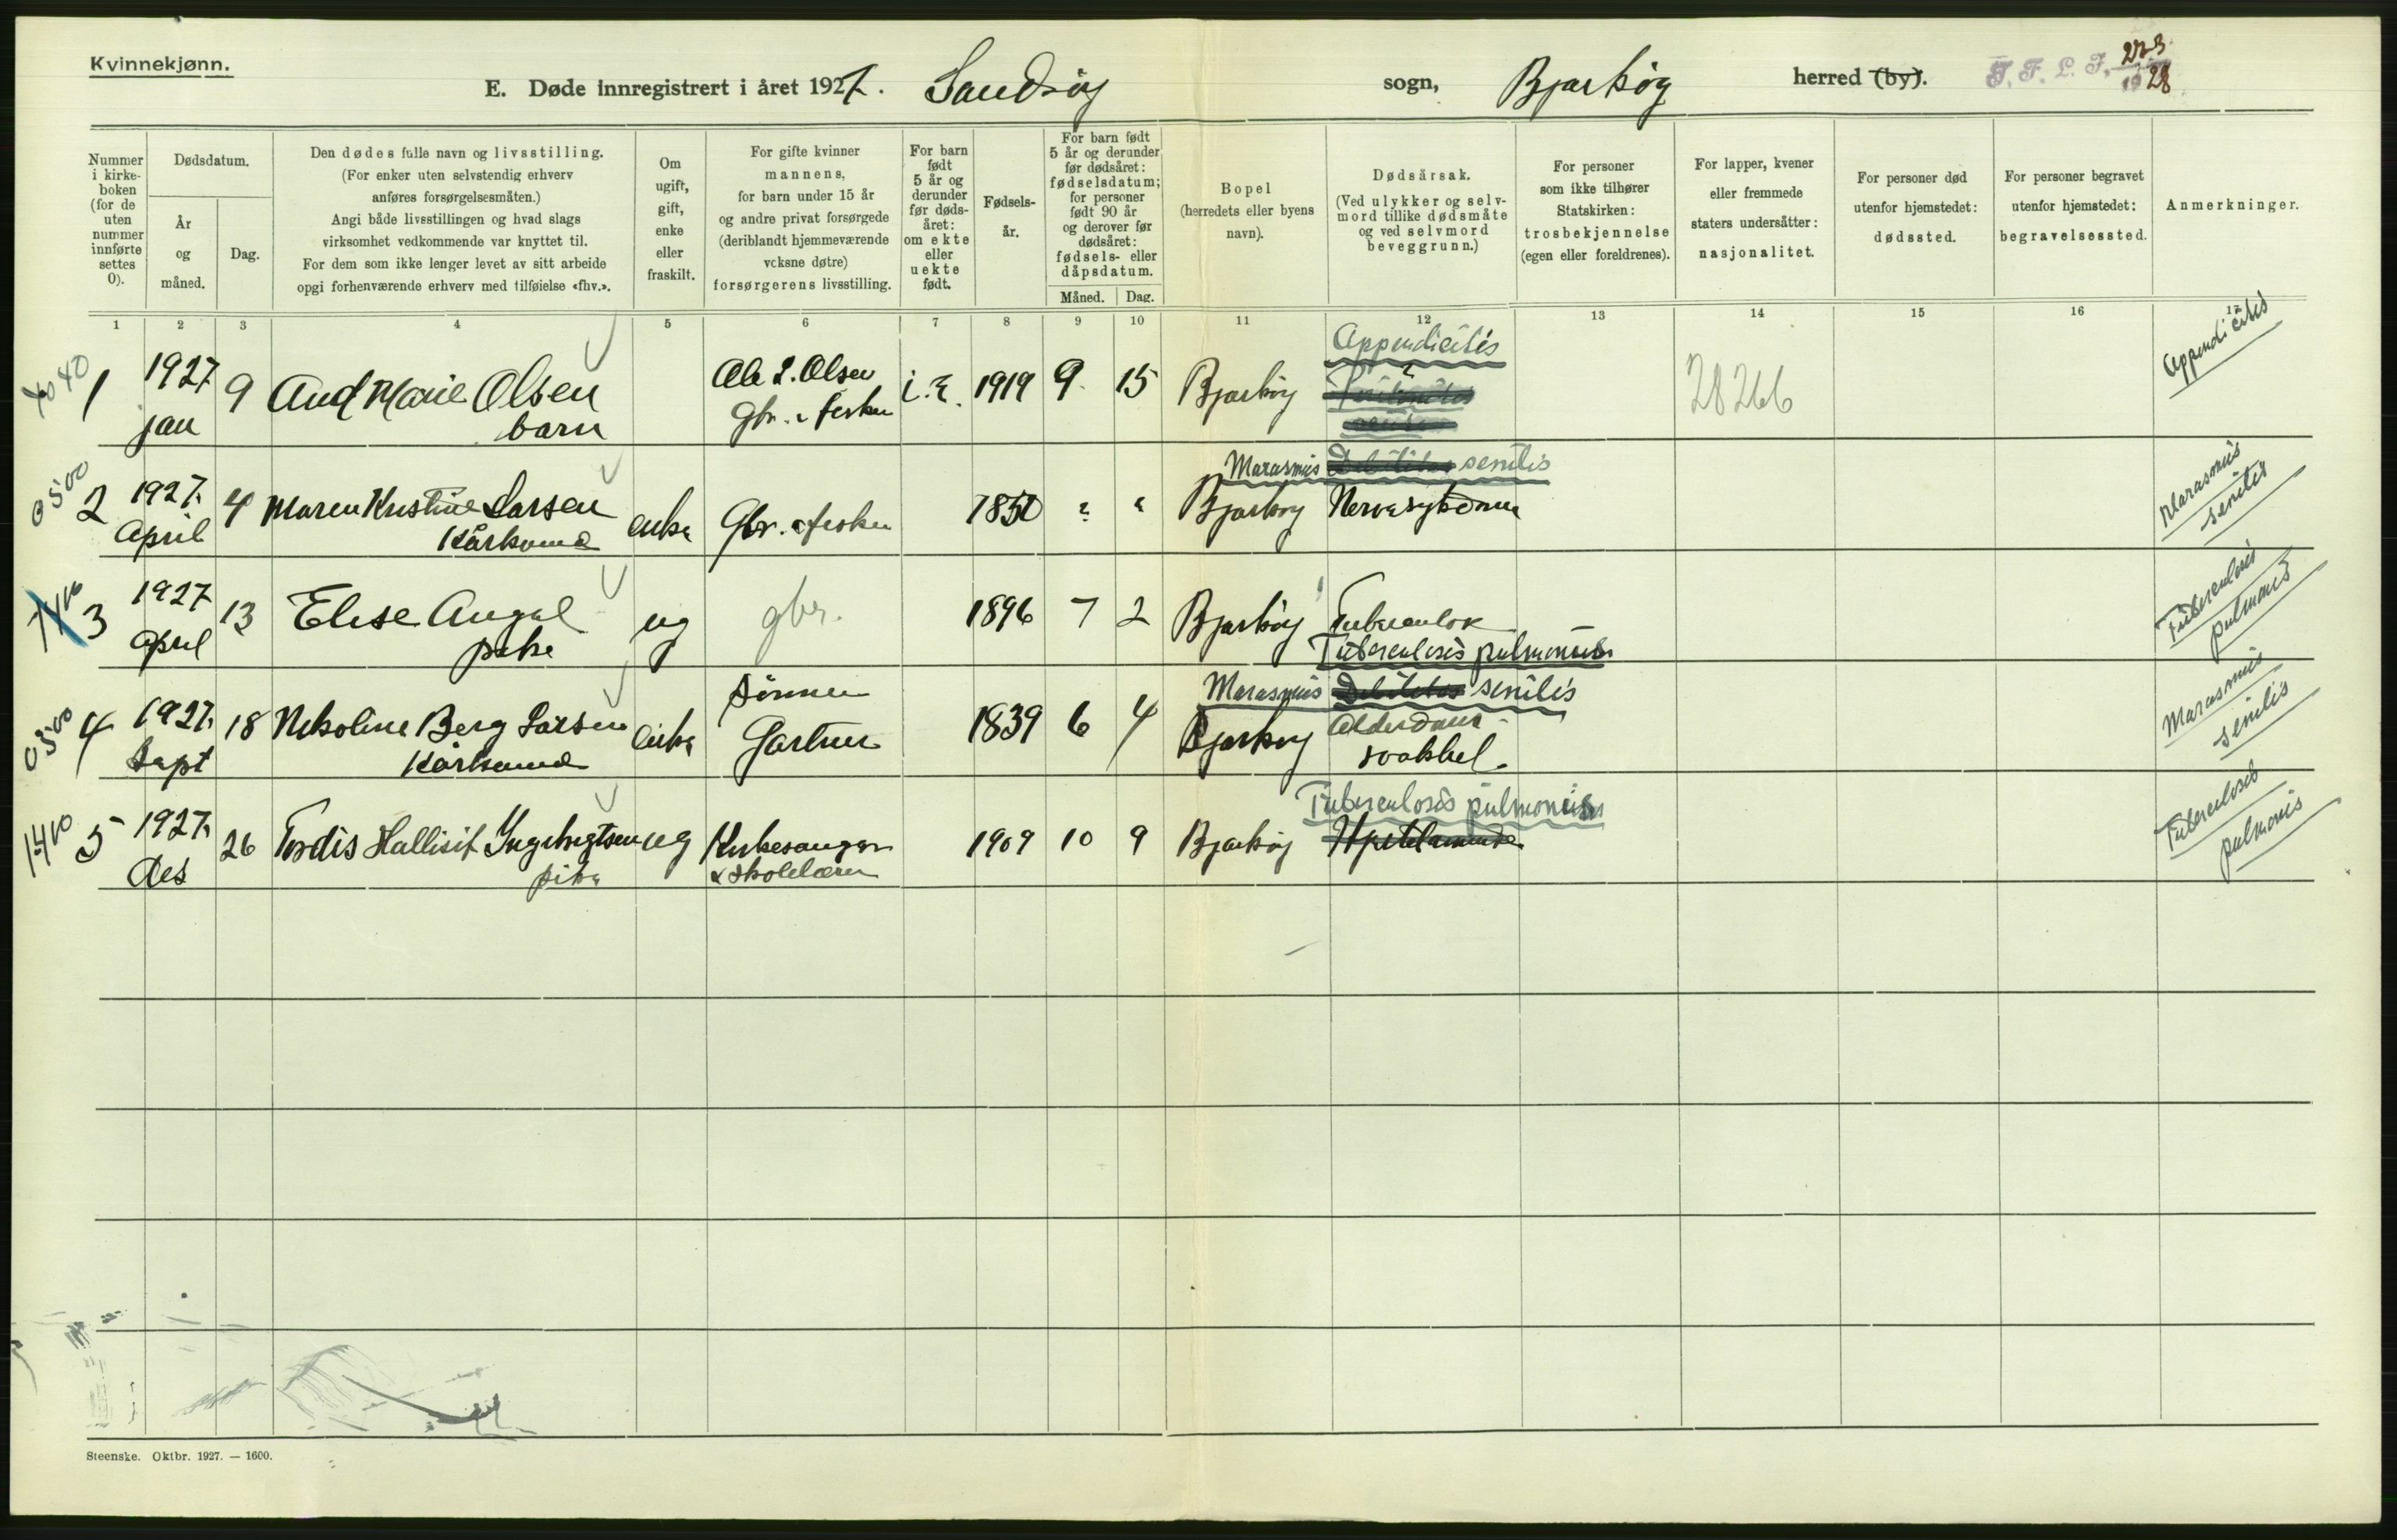 Kvinnekjønn.
E. Døde innregistrert i året 1927. Sandsøy sogn, Bjarkøy herred (by).
T. F. L. F. 1928
Nummer i kirkeboken (for de uten nummer innførte settes 0).
Dødsdatum.
År og måned.
Dag.
Den dødes fulle navn og livsstilling.
(For enker uten selvstendig erhverv
anføres forsørgelsesmåten.)
Angi både livsstillingen og hvad slags
virksomhet vedkommende var knyttet til.
For dem som ikke lenger levet av sitt arbeide
opgi forhenværende erhverv med tilføielse «fhv.».
Om
ugift,
gift,
enke
eller
fraskilt.
For gifte kvinner
mannens,
for barn under 15 år
og andre privat forsørgede
(deriblandt hjemmeværende
voksne døtre)
forsørgerens livsstilling.
For barn
født
5 år og
derunder
før døds-
året:
om ekte
eller
uekte
født.
Fødsels-
år.
For barn født
5 år og derunder
før dødsåret:
fødselsdatum;
for personer
født 90 år
og derover før
dødsåret:
fødsels- eller
dåpsdatum.
Måned. Dag.
Bopel
(herredets eller byens
navn).
Dødsårsak.
(Ved ulykker og selv-
mord tillike dødsmåte
og ved selvmord
beveggrunn.)
For personer
som ikke tilhører
Statskirken:
trosbekjennelse
(egen eller foreldrenes).
For lapper, kvener
eller fremmede
staters undersåtter:
nasjonalitet.
For personer død
utenfor hjemstedet:
dødssted.
For personer begravet
utenfor hjemstedet:
begravelsessted.
Anmerkninger.
1 2 3 4 5 6 7 8 9 10 11 12 13 14 15 16 17
Appendicitis
1 1927 9 Aud Marie Olsen Ole L. Olsen i.E. 1919 9 15 Bjarkøy 28266 Appendicitis
jan barn gbr. & fisker
0500 Marasmus Debilitas senilis
2 1927. 4 Maren Kristine Larsen enke Gbr. & fisker 1850 Bjarkøy Nervesykdom Marasmus senilis
April Kårkona
3 1927 13 Elise Angel ug gbr. 1896 7 2 Bjarkøy Tuberculos Tuberculosis pulmonis
April pike Tuberculosis pulmonis
sønnen Marasmus Debilitas senilis
0500 4 1927. 18 Nikoline Berg Larsen enke Gartner 1839 6 4 Bjarkøy Alderdoms- Marasmus senilis
Sept Kårkona svakhet.
Tuberculosis pulmonis
1410 5 1927. 26 Tordis Hallisif Ingebrigtsen ug Kirkesanger 1909 10 9 Bjarkøy Tuberculosis pulmonis
des pike & skolelærer
Steenske. Oktbr. 1927. — 1600.